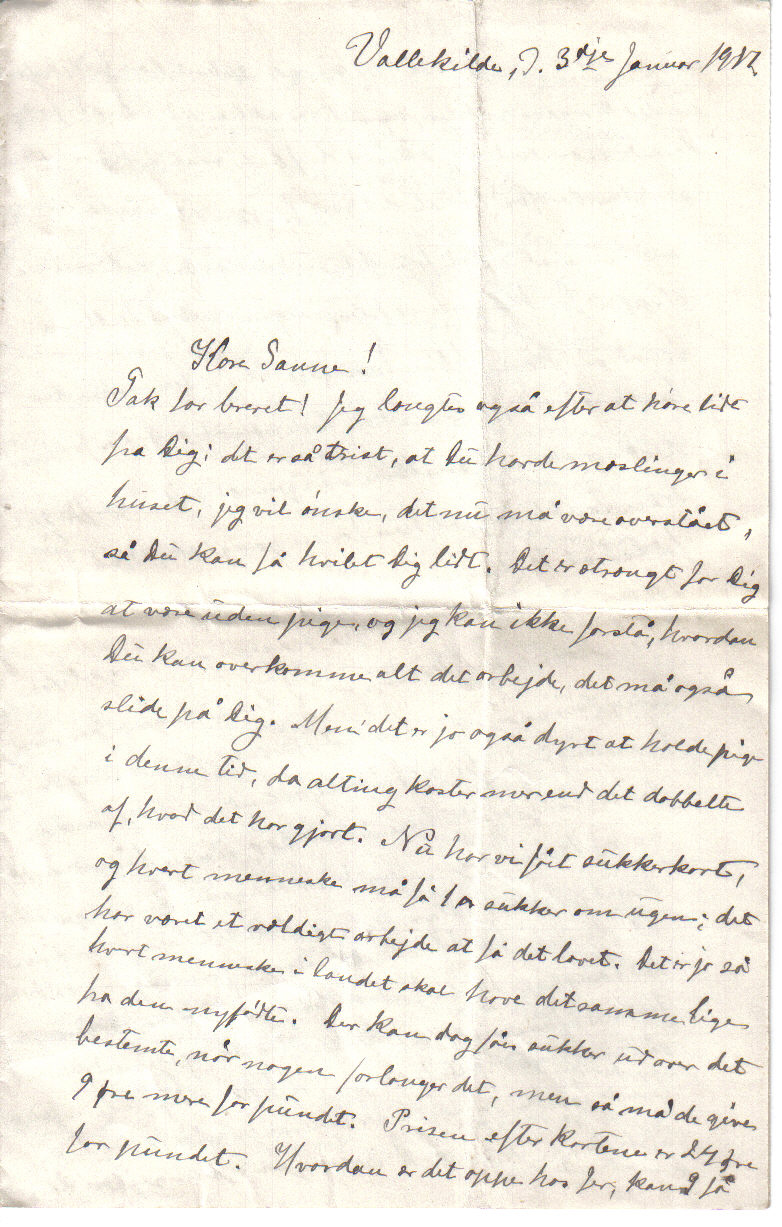 Vallekilde, d. 3dje Januar 1917
Kære Sanne!
Tak for brevet! Jeg længtes også efter at høre lidt
fra Dig; det er så trist, at Du har de mæslinger i
huset, jeg vil ønske, det nu må være overstået,
så Du kan få hvilet Dig lidt. Det er strængt for Dig
at være uden pige, og jeg kan ikke forstå, hvordan
Du kan overkomme alt det arbejde, det må også
slide på Dig. Men det er jo også dyrt at holde pige
i denne tid, da alting koster mer end det dobbelte
af, hvad det har gjort. Nu har vi fået sukkerkort,
og hvert menneske må få 1 sukker om ugen; det
har været et vældigt arbejde at få det lavet. Det er jo så
hvert menneske i landet skal have det samme lige
fra den nyfødte. Der kan dog fåes sukker ud over det
bestemte, når nogen forlanger det, men så må de give
9 øre mere for pundet. Prisen efter kortene er 24 øre
for pundet. Hvordan er det oppe hos Jer, kan I få